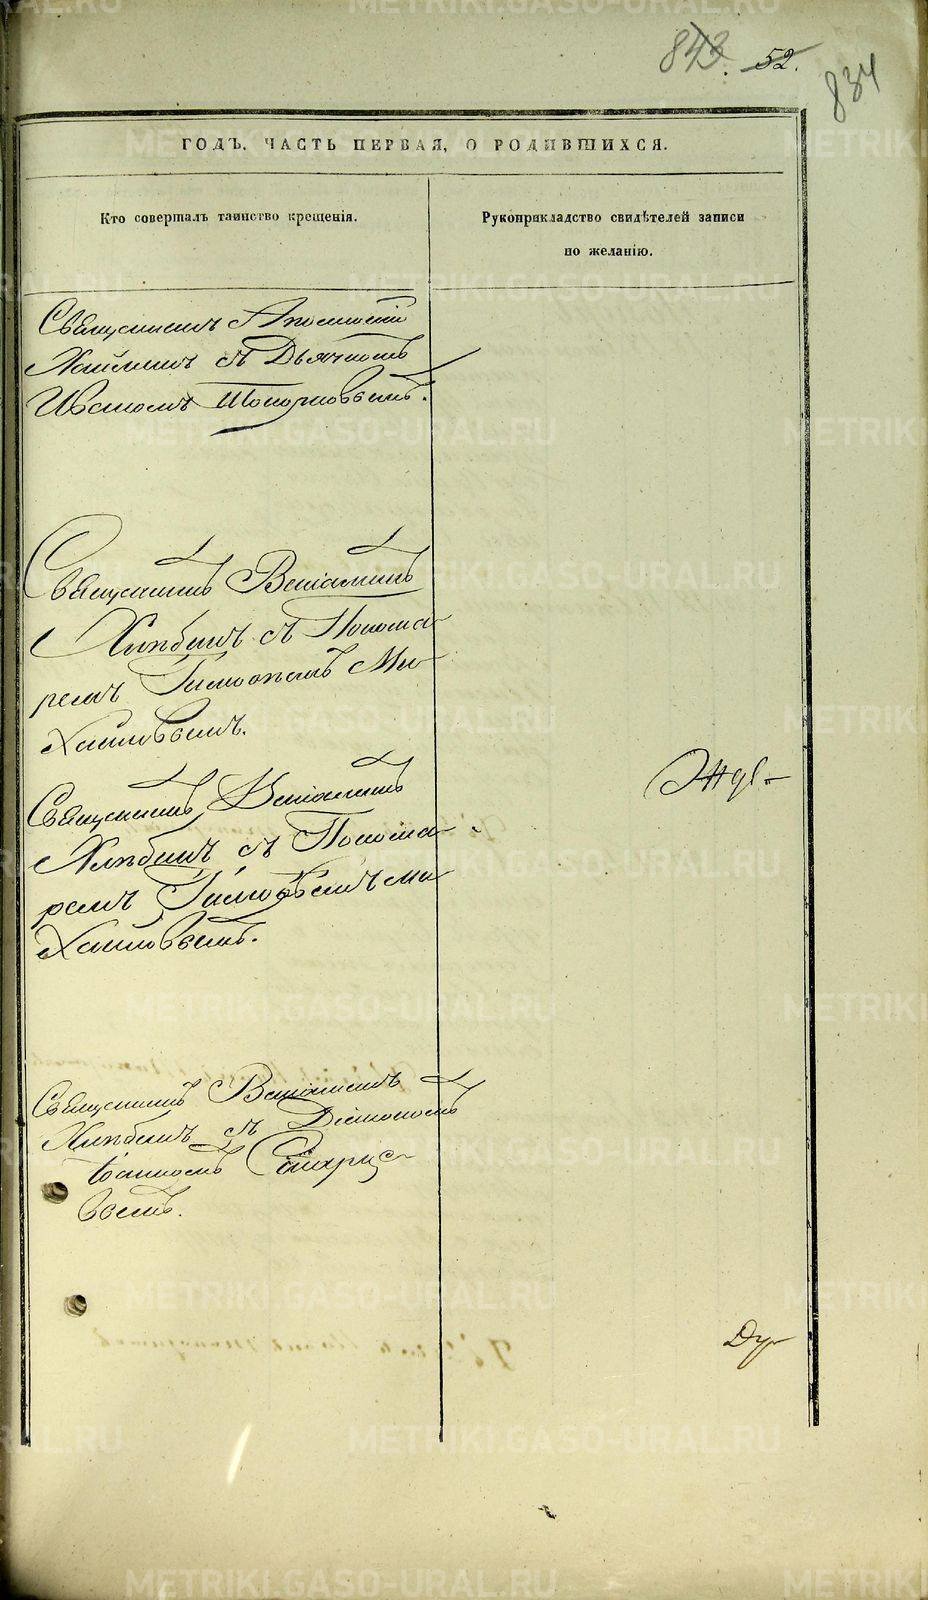 843. 52.
834
ГОДЪ. ЧАСТЬ ПЕРВАЯ, О РОДИВШИХСЯ.
Кто совершалъ таинство крещенія.
Рукоприкладство свидѣтелей записи
по желанію.
Священникъ
съ Дьячкомъ
Иваномъ Топорковымъ.
Священникъ Веніаминъ
Хлѣбинъ съ Понома-
ремъ Тимофеемъ Ми-
хайловымъ.
Священникъ Веніаминъ
Хлѣбинъ съ Понома-
ремъ Тимофеемъ Ми-
хайловымъ.
Священникъ Веніаминъ
Хлѣбинъ съ Діакономъ
Іоанномъ
METRIKI.GASO-URAL.RU